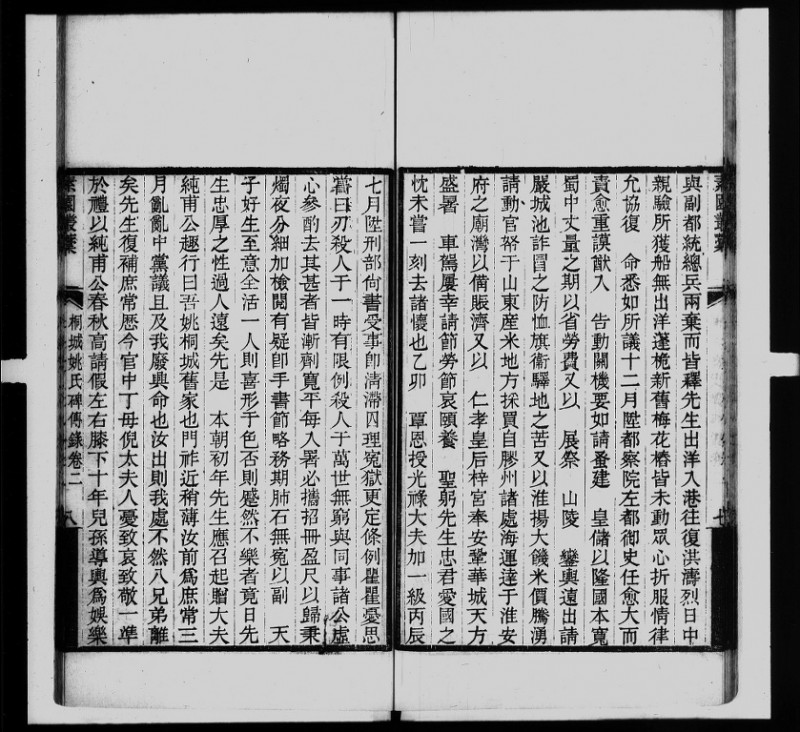 與副都統總兵兩棄而皆釋先生出洋入港往復洪濤烈日中
親驗所獲船無出洋篷桅新舊梅花樁皆未動眾心折服情律
允協復　命悉如所議十二月陞都察院左都御史任愈大而
責愈重謨猷入　告動關機要如請蚤建　皇儲以隆國本寬
蜀中丈量之期以省勞費又以　展祭　山陵　鑾輿遠出請
嚴城池詐冒之防恤旗衛驛地之苦又以淮揚大饑米價騰湧
請動官帑于山東產米地方採買自膠州諸處海運達于淮安
府之廟灣以備賑濟又以　仁孝皇后梓宮奉安鞏華城天方
盛暑　車駕屢幸請節勞節哀頤養　聖躬先生忠君愛國之
忱未嘗一刻去諸懷也乙卯　覃恩授光祿大夫加一級丙辰
七月陞刑部尙書受事卽清滯囚理冤獄更定條例瞿瞿憂思
嘗曰刃殺人于一時有限例殺人于萬世無窮與同事諸公虛
心參酌去其甚者皆漸劑寬平每入署必攜招冊盈尺以歸秉
燭夜分細加檢閱有疑卽手書節略務期肺石無冤以副　天
子好生至意全活一人則喜形于色否則蹙然不樂者竟日先
生忠厚之性過人遠矣先是　本朝初年先生應召起贈大夫
純甫公趣行曰吾姚桐城舊家也門祚近稍薄汝前爲庶常三
月亂亂中黨議且及我廢興命也汝出則我處不然八兄弟離
矣先生復補庶常歷今官中丁母倪太夫人憂致哀致敬一準
於禮以純甫公春秋高請假左右膝下十年兒孫導輿爲娛樂
桐城姚氏碑傳錄卷二
八